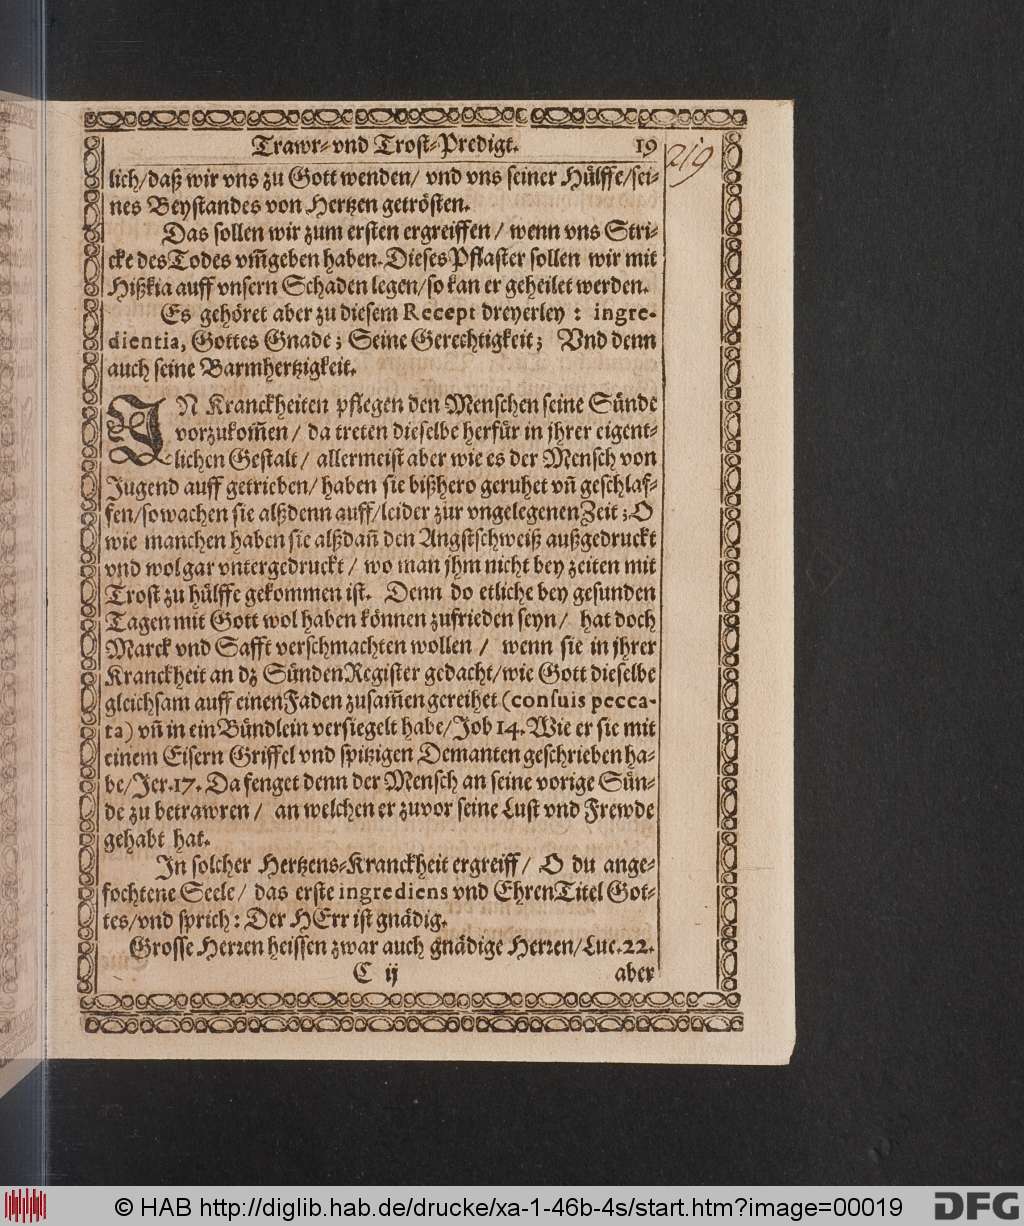 Trawr- vnd Trost-Predigt. 19
219
lich/daß wir vns zu Gott wenden/ vnd vns seiner Hülffe/sei-
nes Beystandes von Hertzen getrösten.
Das sollen wir zum ersten ergreiffen/ wenn vns Stri-
cke des Todes vm̃geben haben. Dieses Pflaster sollen wir mit
Hißkia auff vnsern Schaden legen/so kan er geheilet werden.
Es gehöret aber zu diesem Recept dreyerley: ingre-
dientia, Gottes Gnade; Seine Gerechtigkeit; Vnd denn
auch seine Barmhertzigkeit.
IN Kranckheiten pflegen den Menschen seine Sünde
vorzukom̃en/ da treten dieselbe herfür in jhrer eigent-
lichen Gestalt/ allermeist aber wie es der Mensch von
Jugend auff getrieben/ haben sie bißhero geruhet vñ geschlaf-
fen/so wachen sie alßdenn auff/leider zur vngelegenen Zeit; O
wie manchen haben sie alßdañ den Angstschweiß außgedruckt
vnd wol gar vntergedruckt/ wo man jhm nicht bey zeiten mit
Trost zu hülffe gekommen ist. Denn do etliche bey gesunden
Tagen mit Gott wol haben können zufrieden seyn/ hat doch
Marck vnd Safft verschmachten wollen/ wenn sie in jhrer
Kranckheit an dz Sünden Register gedacht/wie Gott dieselbe
gleichsam auff einen Faden zusam̃en gereihet (consuis pecca-
ta) vñ in ein Bündlein versiegelt habe/Job 14. Wie er sie mit
einem Eisern Griffel vnd spitzigen Demanten geschrieben ha-
be/Jer.17. Da fenget denn der Mensch an seine vorige Sün-
de zu betrawren/ an welchen er zuvor seine Lust vnd Frewde
gehabt hat.
In solcher Hertzens-Kranckheit ergreiff/ O du ange-
fochtene Seele/ das erste ingrediens vnd EhrenTitel Got-
tes/vnd sprich: Der HErr ist gnädig.
Grosse Herren heissen zwar auch gnädige Herren/Luc.22.
C ij aber
© HAB http://diglib.hab.de/drucke/xa-1-46b-4s/start.htm?image=00019
DFG